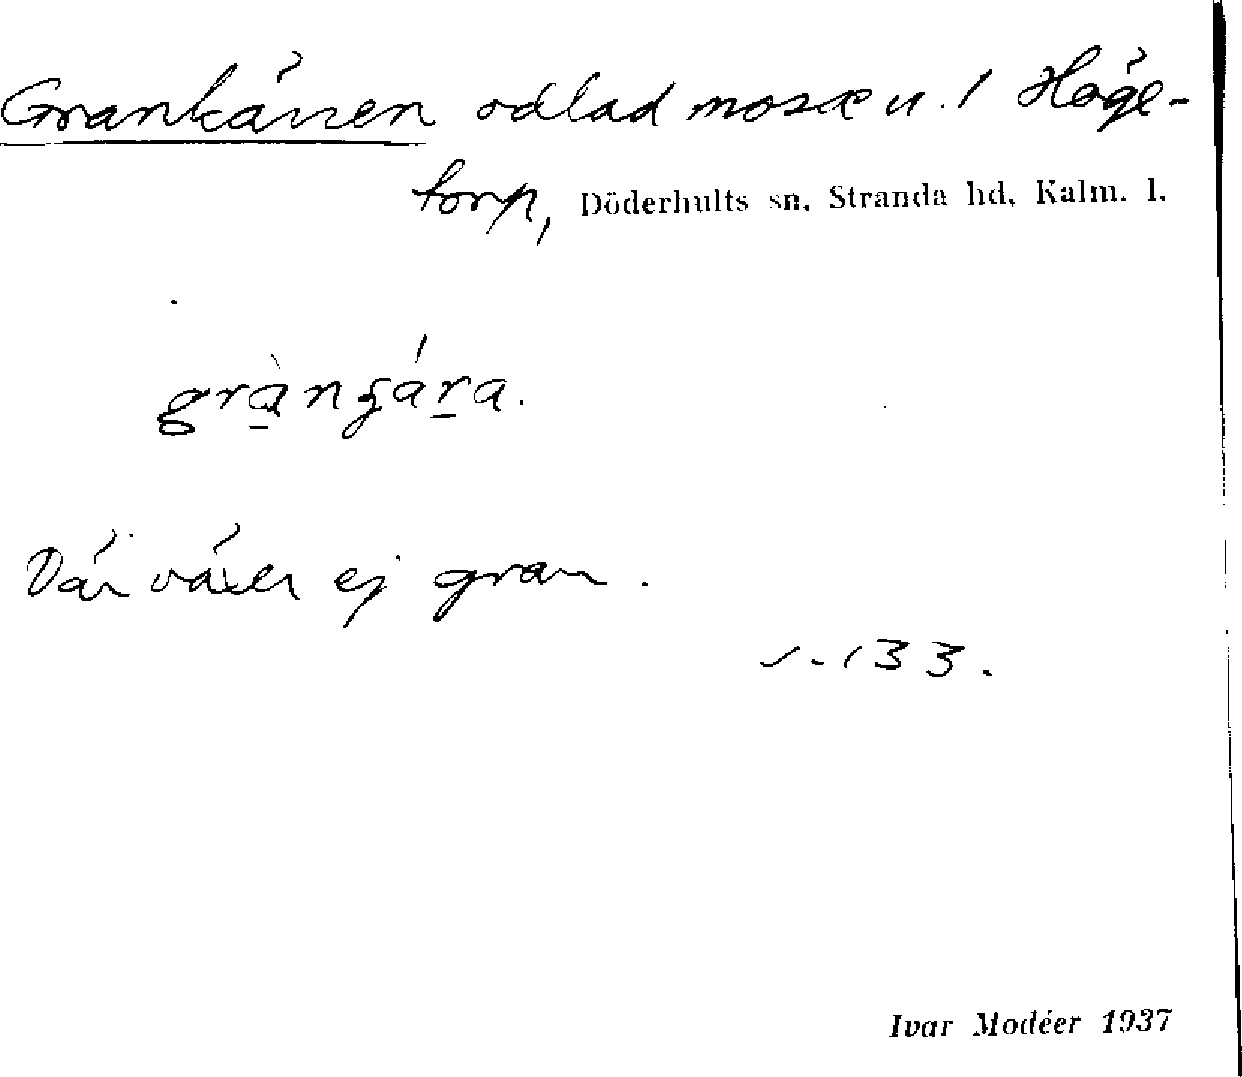 Grankärren odlad mosse u. 1 Höge-
torp, Döderhults sn. Stranda hd, Kalm. l.
Där växer ej gran.
s. 133.
Ivar Modéer 1937